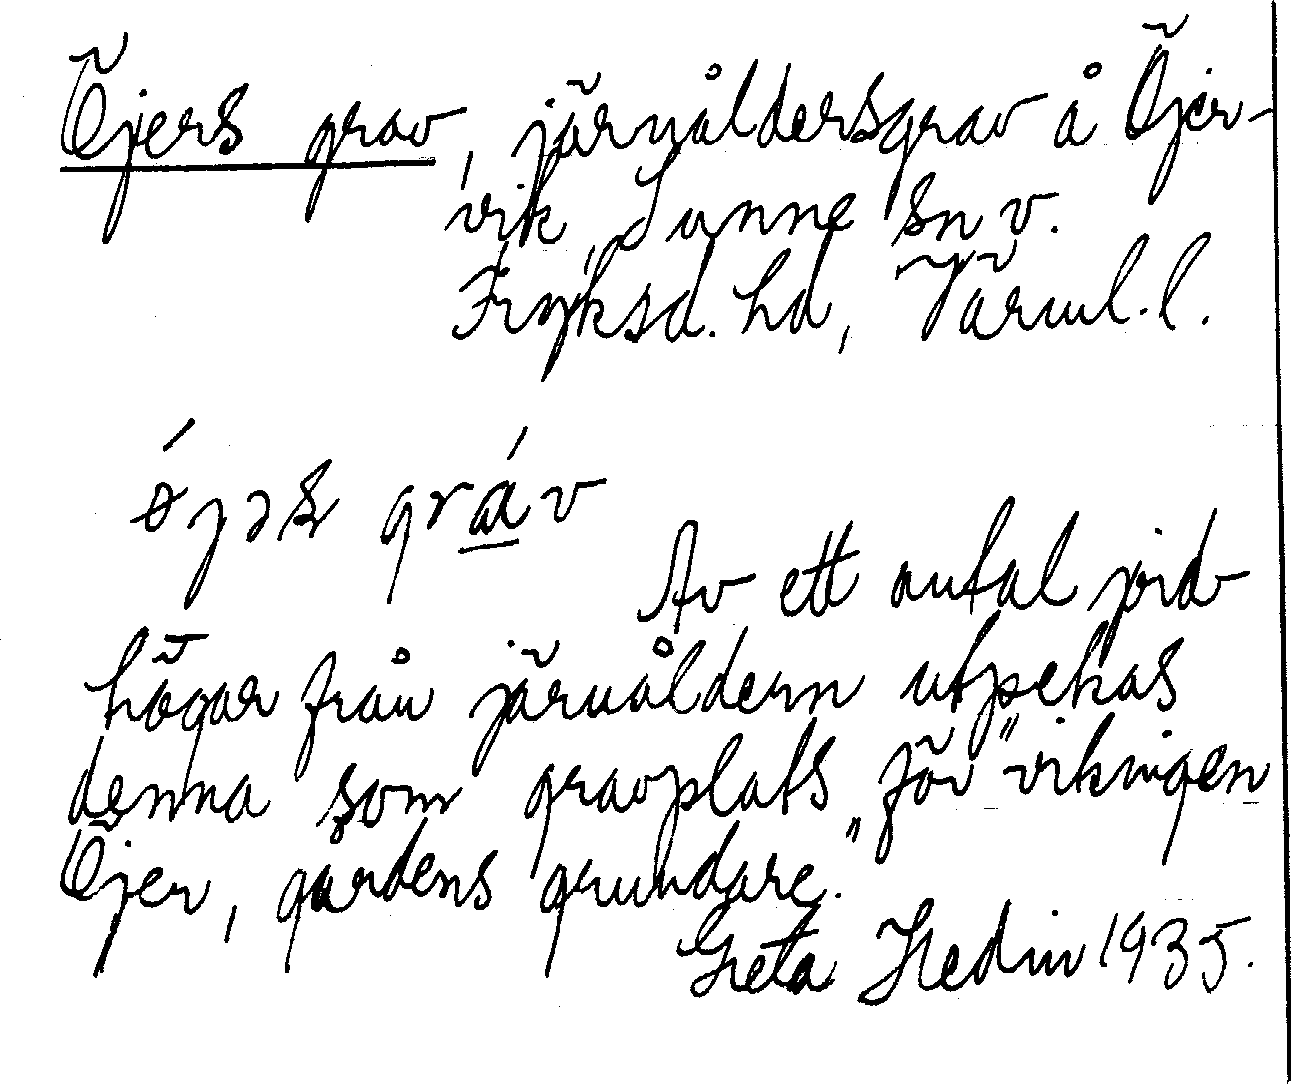 Öjers grav, järnåldersgrav å Öjer-
vik, Sunne sn v.
Fryksd. hd, Värml. l.
grav
Av ett antal jord-
högar från järnåldern utpekas
denna som gravplats för "vikingen
Öjer, gårdens grundare."
Greta Hedin 1935.